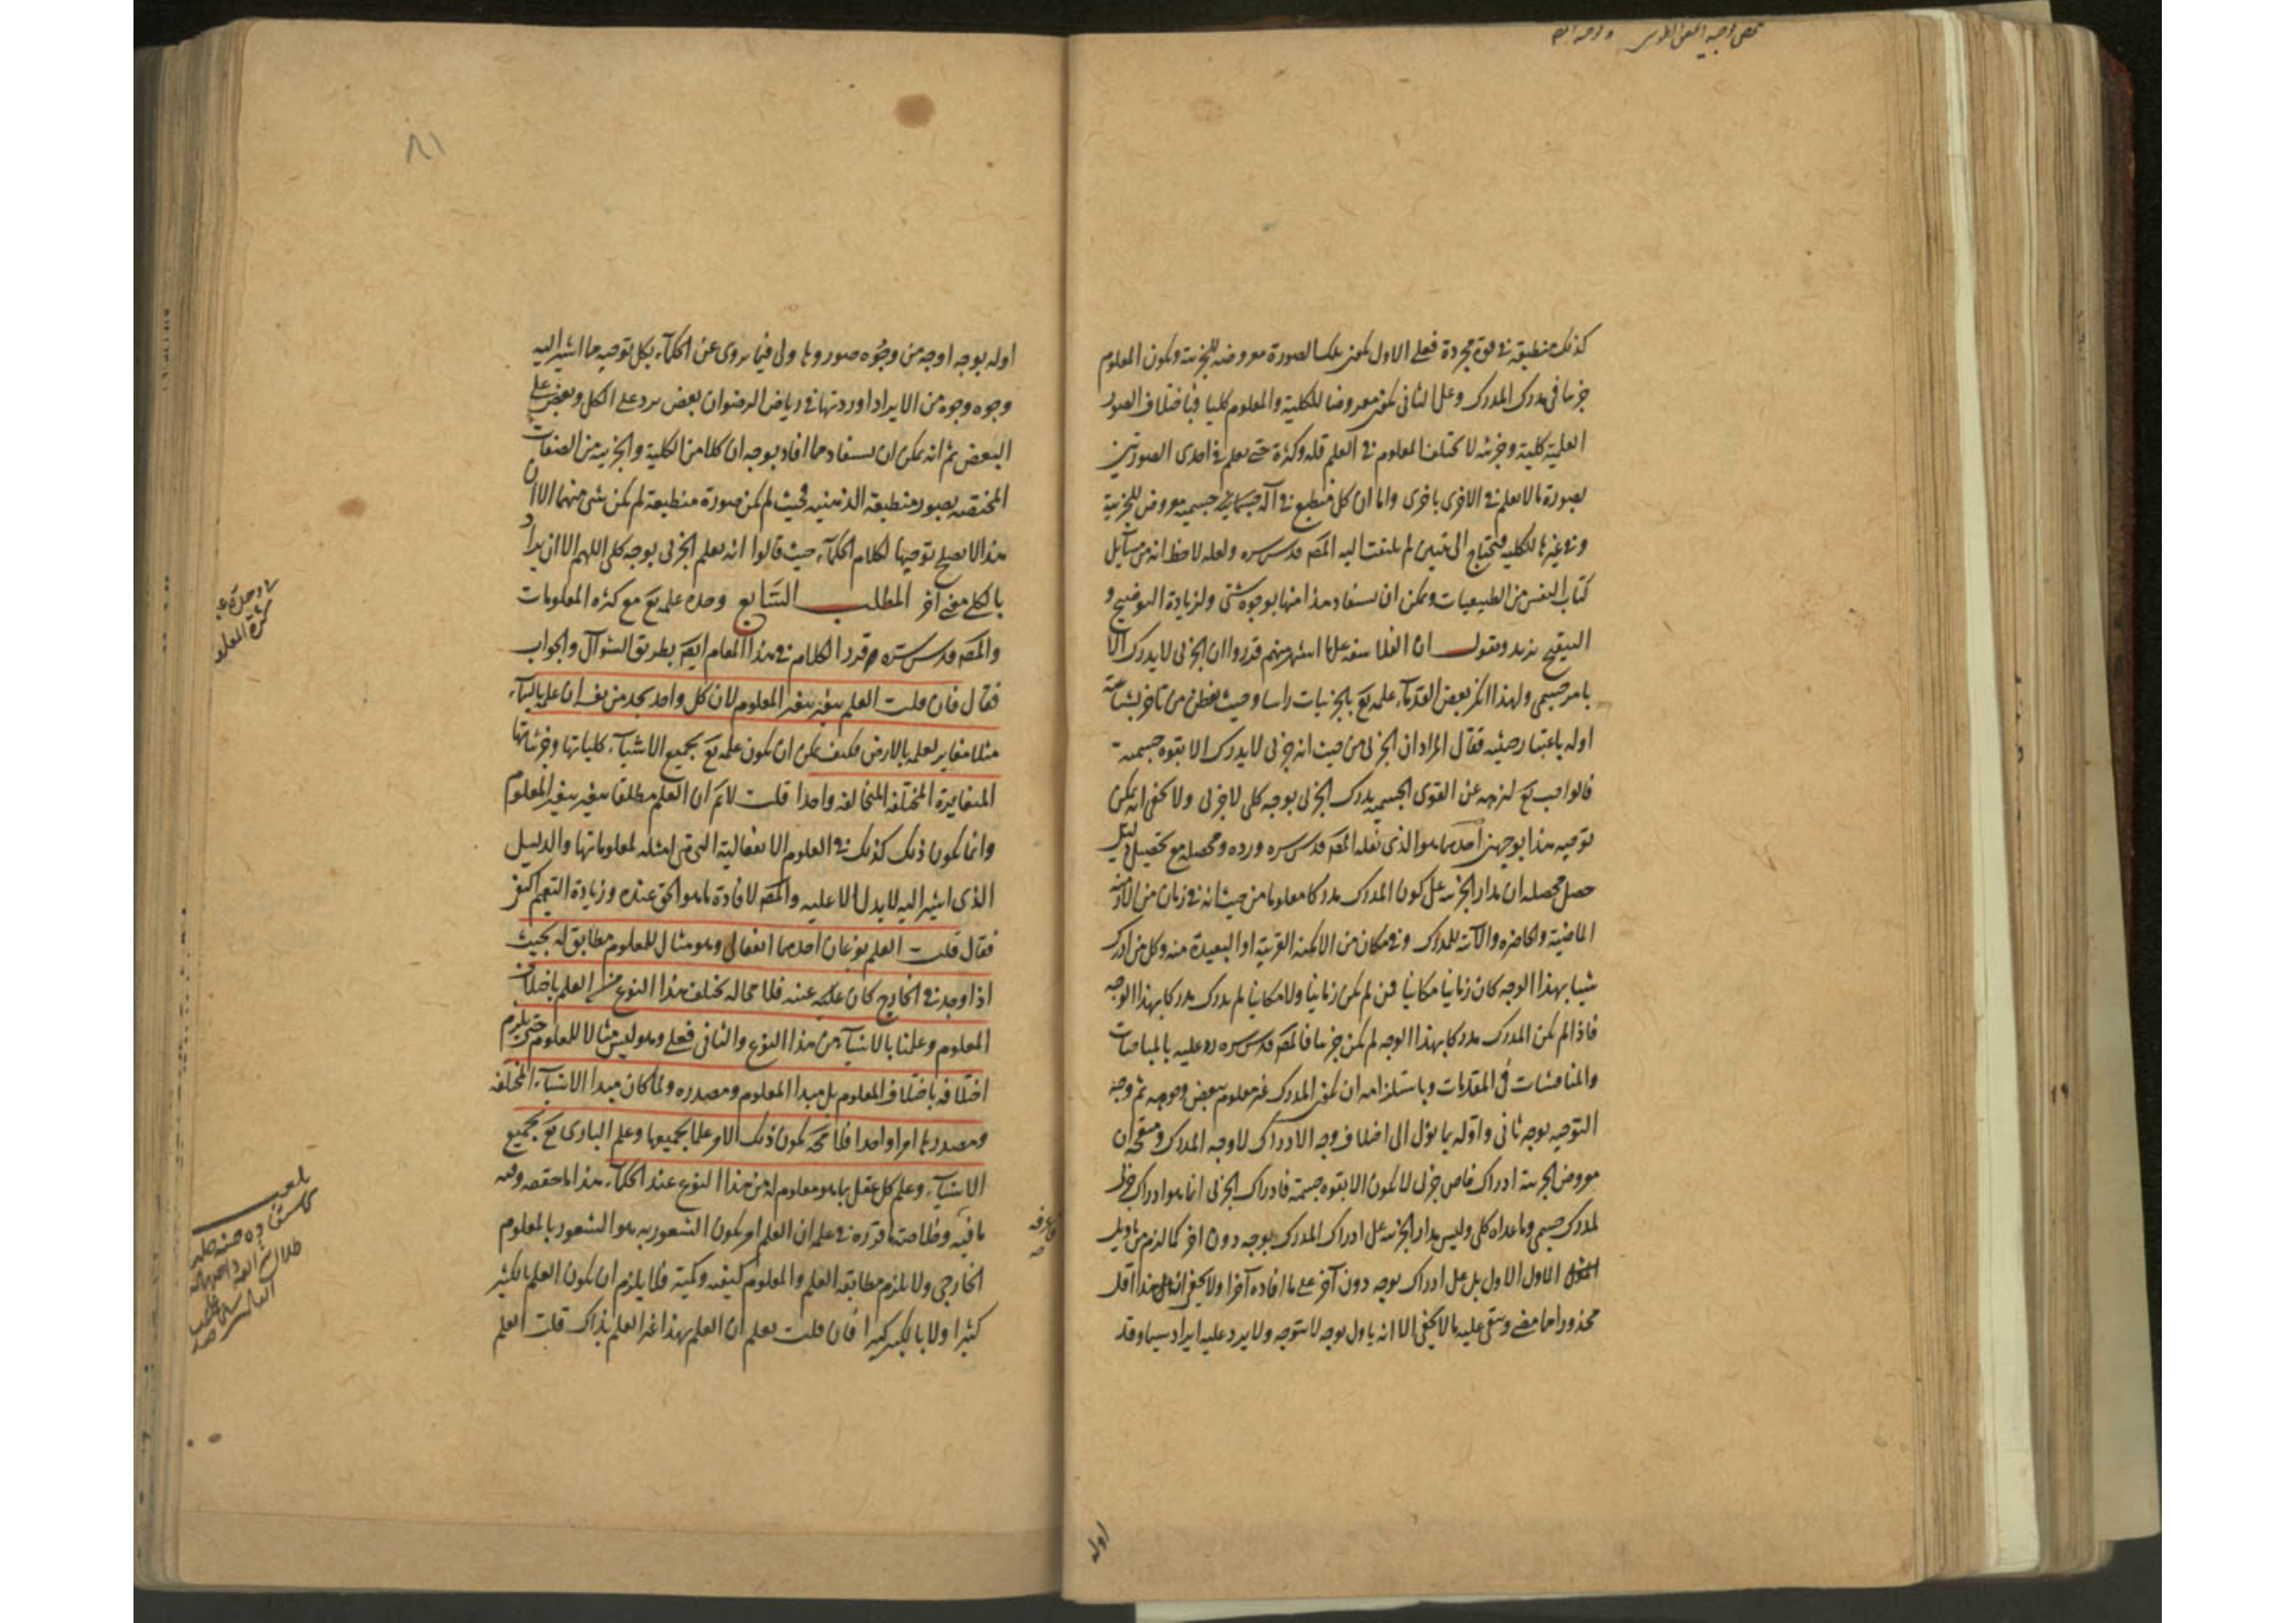 كذلك منطبقة في قوة مجردة فعلى الاول تكون تلك الصورة معروضة للجزئية ويكون المعلوم
جزئيا في مدرك المدرك وعلى الثاني تكون معروضا للكلية والمعلوم كليا فباختلاف الصور
العلمية كلية وجزئية لا يختلف المعلوم في العلم قلة وكثرة حتى يعلم في احدى الصورتين
بصورة ما لا يعلم في الاخرى باخرى واما ان كل منطبع في آلة جسمانية جسمية معروض للجزئية
وفي غيرها للكلية فيحتاج الى تبيين لم يلتفت اليه المص قدس سره ولعله لاحظ انه من مسائل
كتاب النفس من الطبيعيات ويمكن ان يستفاد هذا منها بوجوه شتى ولزيادة التوضيح و
التنقيح نزيد ونقول ان الفلاسفة على ما اشتهر منهم قرروا ان الجزئي لا يدرك الا
بامر جسمي ولهذا انكر بعض القدماء علمه تع بالجزئيات راسا وحيث تفطن من تاخر بشناعته
اوله باعتبار حيثية فقال المراد ان الجزئي من حيث انه جزئي لا يدرك الا بقوة جسمية
فالواجب تع لتنزهه عن القوى الجسمية يدرك الجزئي بوجه كلي لا جزئي ولا يخفى انه يمكن
توجيه هذا بوجهين احدهما هو الذي نقله المص قدس سره ورده ومحصله مع تحصيل دليل
حصل محصله ان مدار الجزئية على كون المدرك مدركا معلوما من حيث انه في زمان من الازمنة
الماضية والحاضرة والآتية للمدرك وفي مكان من الامكنة القريبة او البعيدة منه وكل من ادرك
شيئا بهذا الوجه كان زمانيا مكانيا فمن لم يكن زمانيا ولا مكانيا لم يدرك مدركا بهذا الوجه
فاذا لم يكن المدرك مدركا بهذا الوجه لم يكن جزئيا فالمص قدس سره رد عليه بالمباحثات
والمناقشات في المقدمات وباستلزامه ان يكون المدرك غير معلوم ببعض وجوهه ثم وجه
التوجيه بوجه ثاني واوله بما يؤل الى اختلاف وجه الادراك لا وجه المدرك ومنقحه ان
معروض الجزئية ادراك خاص جزئي لا يكون الا بقوة جسمية فادراك الجزئي انما هو ادراك جزئي
لمدرك جسمي وما عداه كلي وليس مدار الجزئية على ادراك المدرك بوجه دون اخر كما لزم من تاويل
الاول الاول بل على ادراك بوجه دون آخر على ما افاده آخرا ولا يخفى ان هذا اقل
محذورا مما مضى وبقي عليه ما لا يخفى الا انه ياول بوجه لا يتوجه ولا يرد عليه ايراد سيما وقد
اوله
٨١
اوله بوجه اوجه من وجوه صوروها ولي فيما يروى عن الحكماء بكل توجيه مما اشير اليه
وجوه وجوه من الايراد اوردتها في رياض الرضوان بعض يرد على الكل وبعض على
البعض ثم انه يمكن ان يستفاد مما افاد بوجه ان كلا من الكلية والجزئية من الصفات
المختصة بصور منطبعة الذهنية فحيث لم يكن صورة منطبعة لم يكن شئ منهما الا ان
هذا لا يصلح توجيها لكلام الحكماء حيث قالوا انه يعلم الجزئي بوجه كلي اللهم الا ان يراد
بالكلي معنى آخر المطلب السابع وحدة علمه تع مع كثرة المعلومات
والمص قدس سره قرر الكلام في هذا المقام ايضا بطريق السؤال والجواب
فقال فان قلت العلم يتغير بتغير المعلوم لان كل واحد يجد من نفسه ان علمه بالسماء
مثلا مغاير لعلمه بالارض فكيف يمكن ان يكون علمه تع بجميع الاشياء كلياتها وجزئياتها
المتغايرة المختلفة المتخالفة واحدا قلت لا نم ان العلم مطلقا يتغير بتغير المعلوم
وانما يكون ذلك كذلك في العلوم الانفعالية التي هي امثلة لمعلوماتها والدليل
الذي اشير اليه لا يدل الا عليه والمص لافادة ما هو الحق عنده وزيادة التعميم
فقال قلت العلم نوعان احدهما انفعالي وهو مثال للمعلوم مطابق له بحيث
اذا وجد في الخارج كان عينه فلا محالة يختلف هذا النوع من العلم باختلاف
المعلوم وعلمنا بالاشياء من هذا النوع والثاني فعلي وهو ليس مثالا للمعلوم حتى يلزم
اختلافه باختلاف المعلوم بل مبدا المعلوم ومصدره ولما كان مبدا الاشياء المختلفة
ومصدرها امرا واحدا فلا محة يكون ذلك الامر علما بجميعها وعلم البارى تع بجميع
الاشياء وعلم كل عقل بما هو معلوم له من هذا النوع عند الحكماء هذا ما حققه وفيه
ما فيه وخلاصة ما قرره في علمه ان العلم امر يكون الشعور به هو الشعور بالمعلوم
الخارجي ولا يلزم مطابقة العلم والمعلوم كيفية وكمية فلا يلزم ان يكون العلم بالكثير
كثيرا ولا بالكبير كبيرا فان قلت يعلم ان العلم بهذا غير العلم بذاك قلت العلم